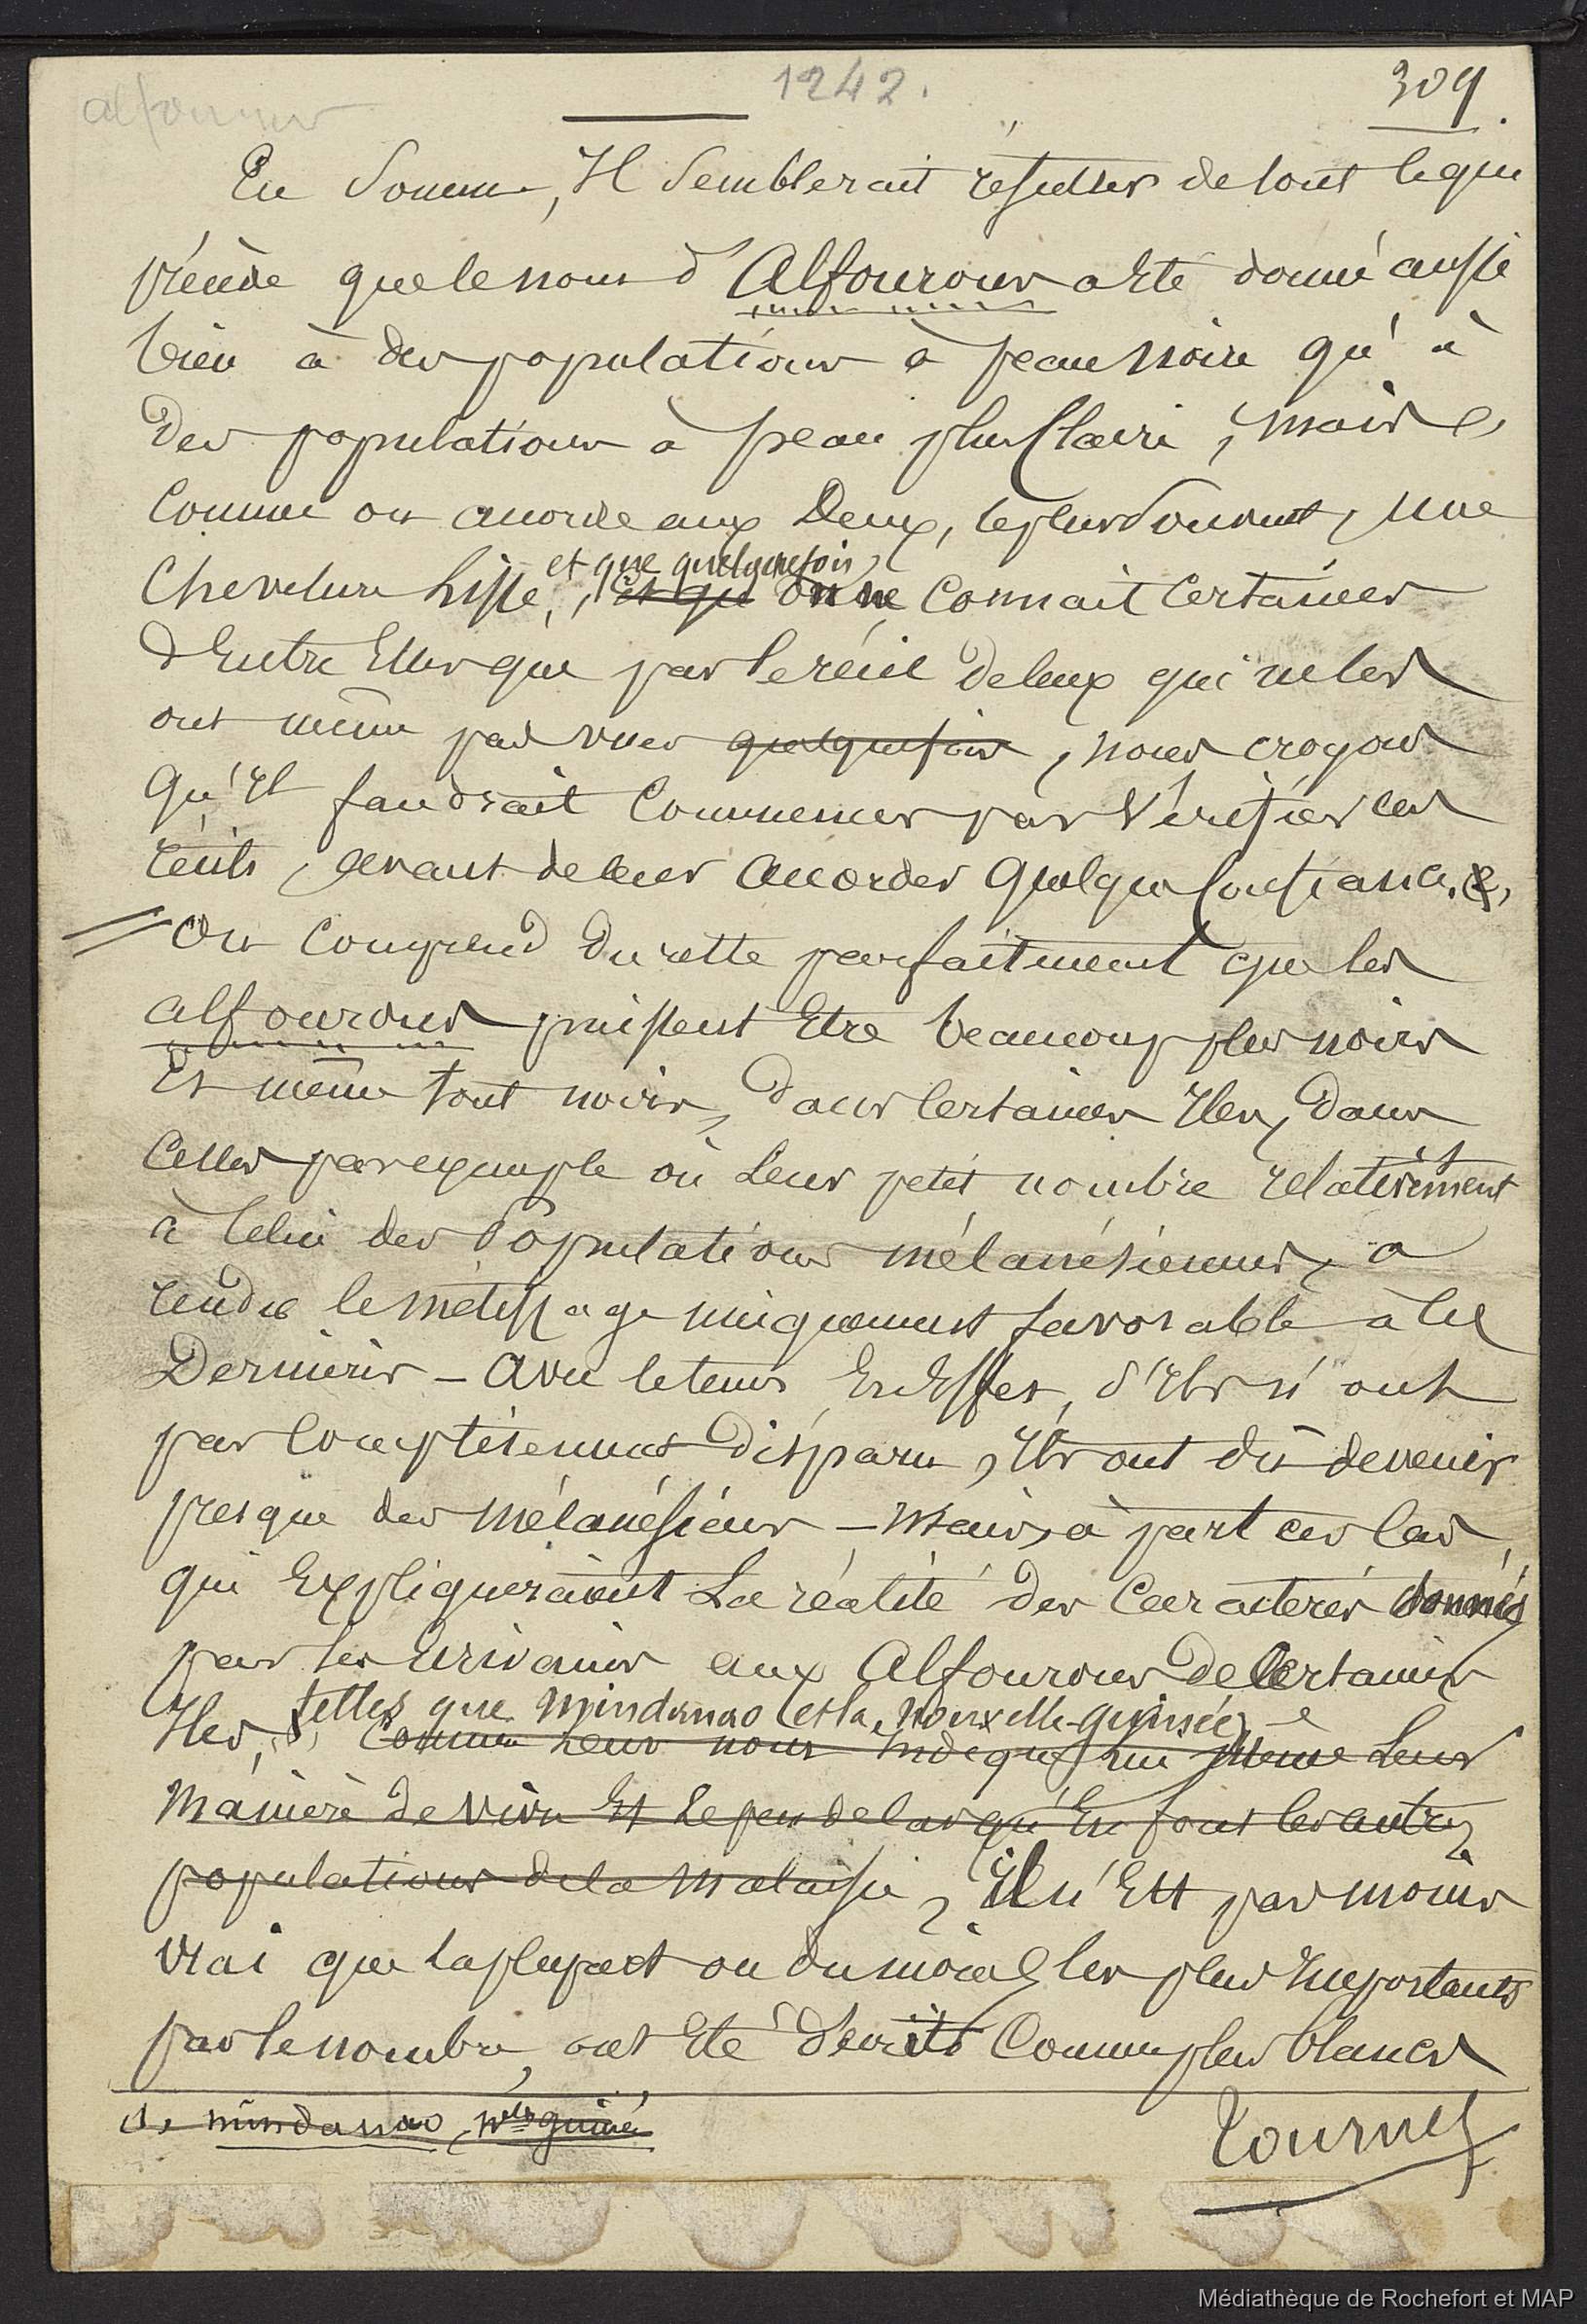 alfourous
1242.
309.
En Somme, Il Semblerait résulter de tout ce qui
précède que le nom d'Alfourous a Eté donné aussi
bien à des populations à peau noire qu'à
Des populations à peau plus Claire, mais
Comme on accorde aux Deux, le plus Souvent, une
et que quelquefois,
Chevelure Lisse, Et que on ne Connait Certaines
d'Entre Elles que par le récit de ceux qui ne les
ont même pas vues quelquefois, nous croyons
qu'Il faudrait Commencer par Vérifier ces
récits, avant de leur accorder quelque Confiance.
On Comprend du reste parfaitement que les
alfourous puissent Etre beaucoup plus noirs
Et même tout noirs, dans Certaines Iles, dans
Celles par exemple où Leur petit nombre relativement
à Celui des Populations mélanésiennes, a
rendu le métissage uniquement favorable à ces
Dernières - avec le temps En Effet, S'Ils n'ont
pas Complètement Disparu, Ils ont dû devenir
presque des mélanésiens - mais, à part ces Cas,
qui Expliqueraient La réalité des Caractères donnés
par les Ecrivains aux Alfourous de Certaines
telles que Mindanao et la Nouvelle-Guinée,
Iles, Comme Leur nom Indique lui Même Leur
Manière de vivre Et Le peu de cas qu'En font les autres
populations de la Malaisie, Il n'Est pas moins
vrai que la plupart ou du moins les plus Importants
par le nombre, ont Eté décrits Comme plus blancs
de mindanao, nelle guinée
Tournez
Médiathèque de Rochefort et MAP